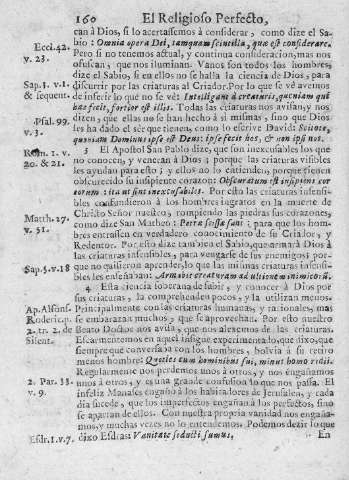 160 El Religioso Perfecto,
can à Dios, si lo acertassemos à considerar, como dize el Sa-
bio: Omnia opera Dei, tamquam scintilla, quæ est considerare.
Pero si no tenemos actual, y continua consideracion, mas nos
ofuscan, que nos iluminan. Vanos son todos los hombres,
dize el Sabio, si en ellos no se halla la ciencia de Dios, para
discurrir por las criaturas al Criador. Por lo que se vè avemos
de inferir lo que no se vè: Intelligant à creaturis, quoniam qui
hæc fecit, fortior est illis. Todas las criaturas nos avisan, y nos
dizen, que ellas no se han hecho à si mismas, sino que Dios
les ha dado el sèr que tienen, como lo escrive David: Scitote,
quoniam Dominus ipse est Deus: ipse fecit nos, & non ipsi nos.
3 El Apostol San Pablo dize, que son inexcusables los que
no conocen, y veneran à Dios; porque las criaturas visibles
les ayudan para esto; y ellos no lo entienden, porque tienen
obscurecido su insipiente corazon: Obscuratum est insipiens cor
eorum: ita ut sint inexcusabiles. Por esto las criaturas insensi-
bles confundieron à los hombres ingratos en la muerte de
Christo Señor nuestro, rompiendo las piedras sus corazones,
como dize San Matheo: Petræ scissæ sunt; para que los hom-
bres entrassen en verdadero conocimiento de su Criador, y
Redentor. Por esto dize tambien el Sabio, que armarà Dios à
las criaturas insensibles, para vengarse de sus enemigos: por-
que no quisieron aprender, lo que las mismas criaturas insensi-
bles les enseñaban: Armabit creaturam ad ultionem inimicorũ.
4 Esta ciencia soberana de sabir, y conocer à Dios por
sus criaturas, la comprehenden pocos, y la utilizan menos.
Principalmente con las criaturas humanas, y racionales, mas
se embarazan muchos, que se aprovechan. Por esto nuestro
Beato Doctor nos avisa, que nos alexemos de las criaturas.
Escarmentemos en aquel insigne experimentado, que dixo, que
siempre que conversaba con los hombres, bolvia à su retiro
menos hombre: Quoties cum hominibus fui, minus homo redii.
Regularmente nos perdemos unos à otros, y nos engañamos
unos à otros, y es una grande confusion lo que nos passa. El
infeliz Manasès engañò à los habitadores de Jerusalen, y cada
dia sucede, que los imperfectos engañan à los perfectos, sino
se apartan de ellos. Con nuestra propria vanidad nos engaña-
mos, y muchas veces no lo entendemos. Podemos dezir lo que
dixo Esdras: Vanitate seducti sumus.
En
Eccl. 42.
v. 23.
Sap. 3. v. 1.
& sequent.
Psal. 99.
v. 3.
Rom. 1. v.
20. & 21.
Matth. 27.
v. 51.
Sap. 5. v. 18
Ap. Alfons.
Roderic. p.
2. tr. 2. de
Silent.
2. Par. 33.
v. 9.
Esdr. 1. v. 7.